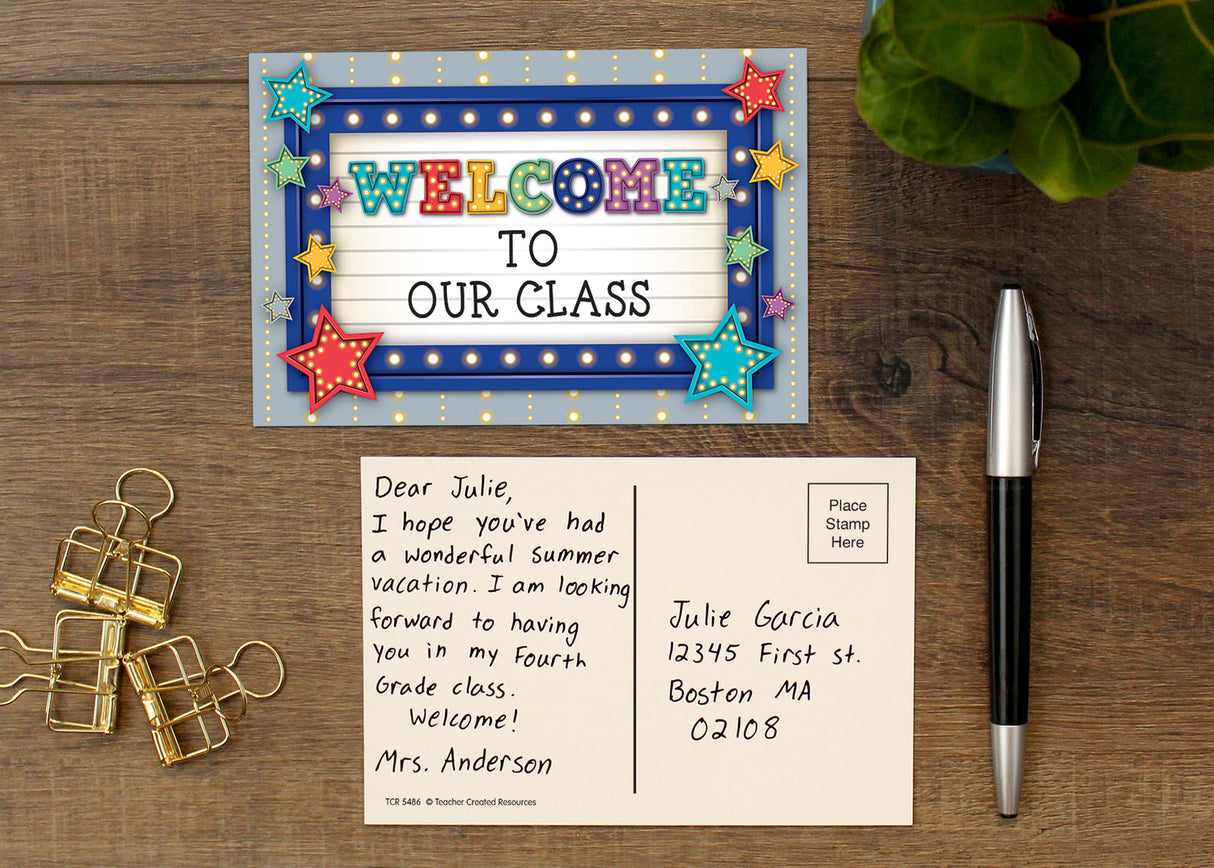 WELCOME
TO
OUR CLASS
Dear Julie,
I hope you've had
a wonderful summer
vacation. I am looking
forward to having
you in my Fourth
Grade class.
Welcome!
Mrs. Anderson
TCR 5486 © Teacher Created Resources
Place
Stamp
Here
Julie Garcia
12345 First st.
Boston MA
02108